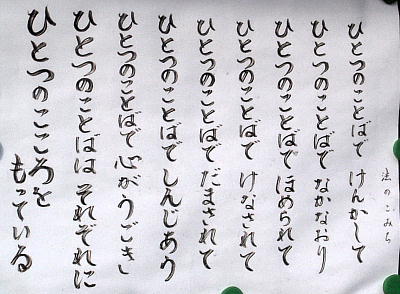 法のこみち
ひとつのことばで けんかして
ひとつのことばで なかなおり
ひとつのことばで ほめられて
ひとつのことばで けなされて
ひとつのことばで だまされて
ひとつのことばで しんじあう
ひとつのことばで 心がうごき
ひとつのことばは それぞれに
ひとつのこころを もっている